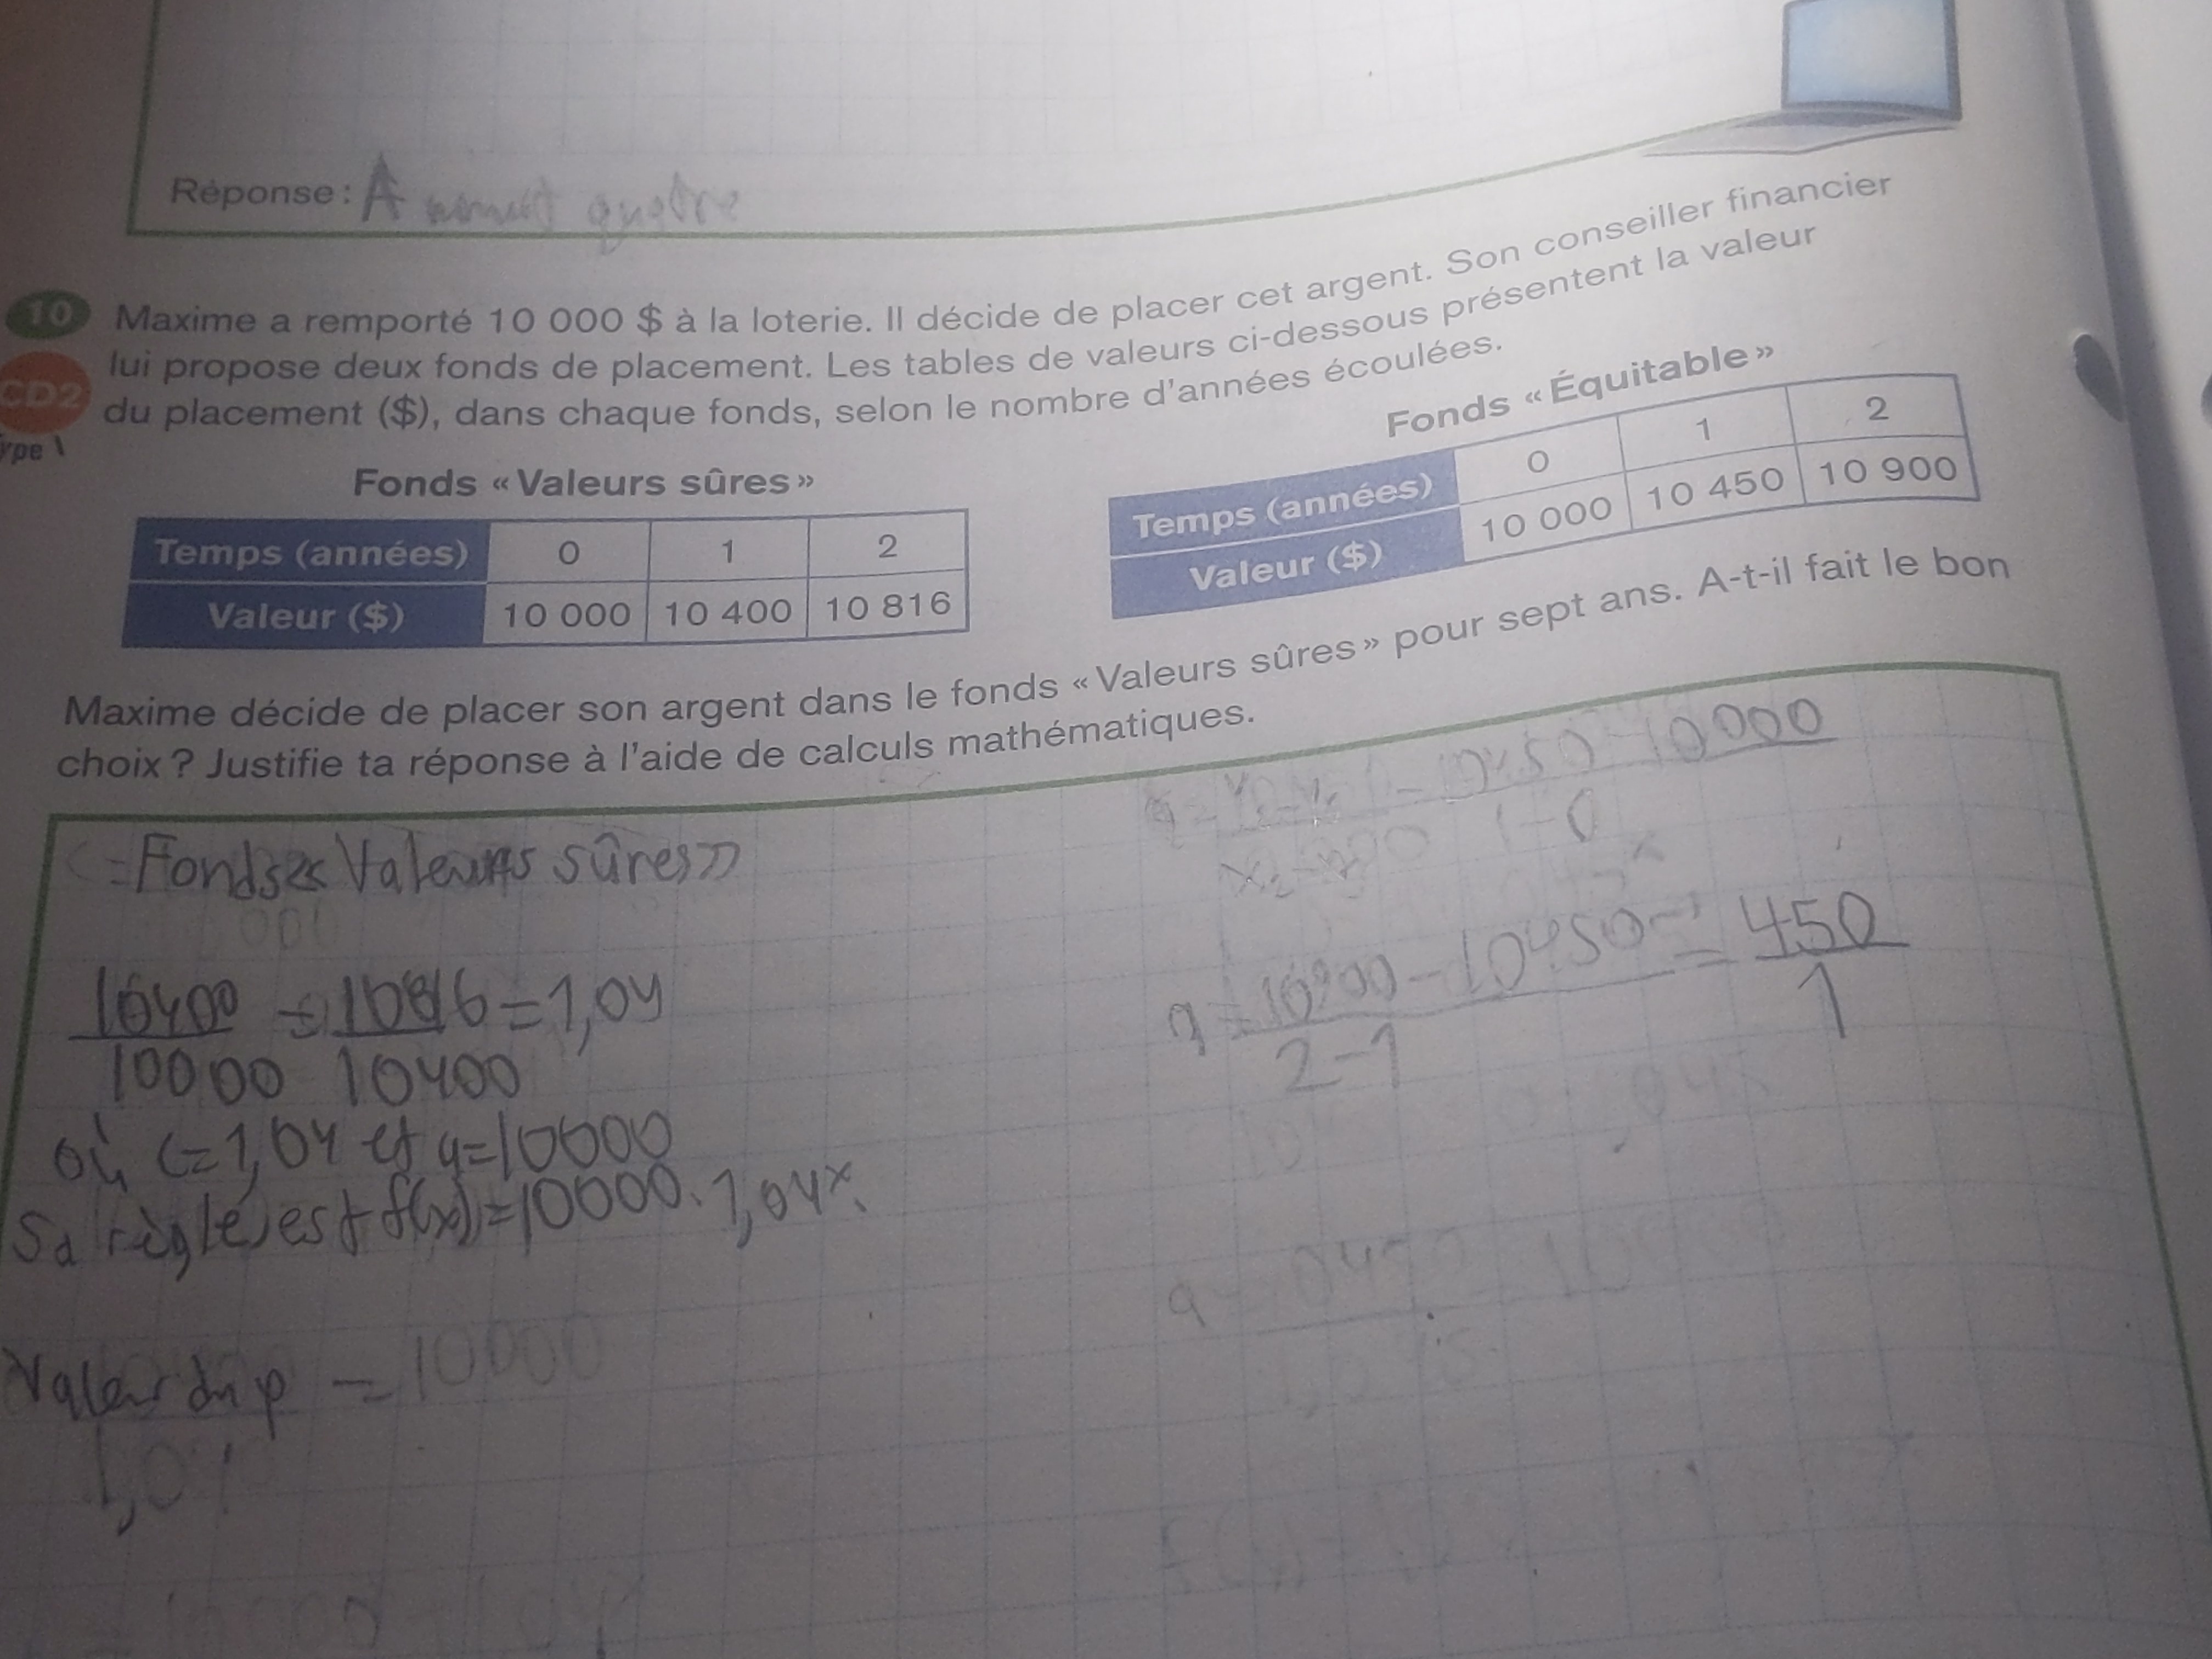 Réponse : A
10 Maxime a remporté 10 000 $ à la loterie. Il décide de placer cet argent. Son conseiller financier
CD2 lui propose deux fonds de placement. Les tables de valeurs ci-dessous présentent la valeur
du placement ($), dans chaque fonds, selon le nombre d'années écoulées.
Fonds « Valeurs sûres »
Temps (années) 0 1 2
Valeur ($) 10 000 10 400 10 816
Fonds « Équitable »
Temps (années) 0 1 2
Valeur ($) 10 000 10 450 10 900
Maxime décide de placer son argent dans le fonds « Valeurs sûres » pour sept ans. A-t-il fait le bon
choix ? Justifie ta réponse à l'aide de calculs mathématiques.
Fonds « Valeurs sûres »
10400 = 10816 = 1,04
10000 10400
où c=1,04 et a=10000
Sa règle est f(x)=10000.1,04x
Valeur du p = 10000
10450-10000
1-0
a = 10900-10450 = 450
2-1 1